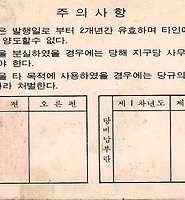 주 의 사 항
은 발행일로 부터 2개년간 유효하며 타인에
양도할수 없다.
을 분실하였을 경우에는 당해 지구당 사무
야 한다.
을 타 목적에 사용하였을 경우에는 당규의
따라 처벌한다.
편 오 른 편
제 1 차년도 제
당비납부란